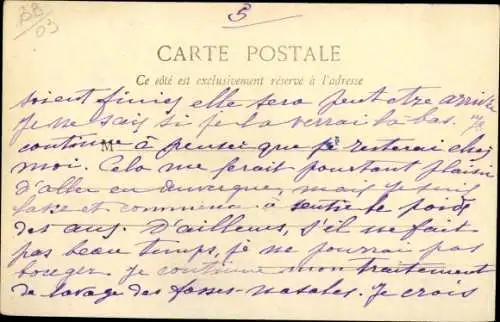 5
BB
03
CARTE POSTALE
Ce côté est exclusivement réservé à l'adresse
soient finies elle sera peut être arrivée
je ne sais si je la verrai là bas.
M
continue à penser que je resterai chez
moi. Cela me ferait pourtant plaisir
d'aller en Auvergne, mais je suis
lasse et commence à sentir le poids
des ans. D'ailleurs, s'il ne fait
pas beau temps, je ne pourrai pas
bouger. Je continue mon traitement
de lavage des fosses-nasales. Je crois